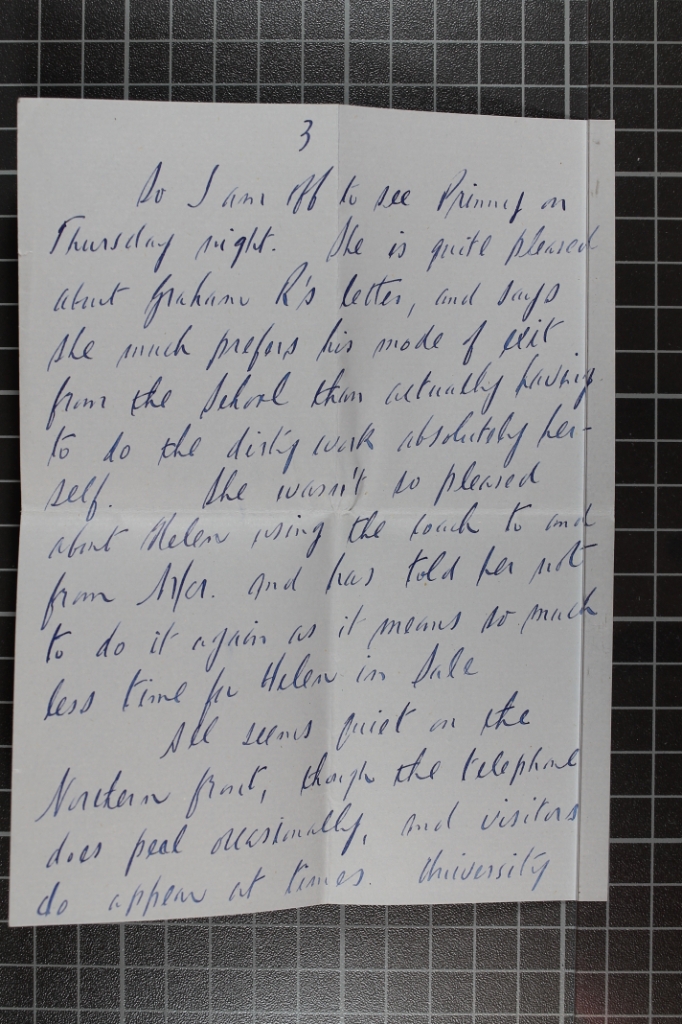 3
So I am off to see Prinny on
Thursday night. She is quite pleased
about Graham R's letter, and says
she much prefers his mode of exit
from the School than actually having
to do the dirty work absolutely her-
self. She wasn't so pleased
about Helen using the coach to and
from M/cr. and has told her not
to do it again as it means so much
less time for Helen in Sale
All seems quiet on the
Northern front, though the telephone
does peal occasionally, and visitors
do appear at times. University